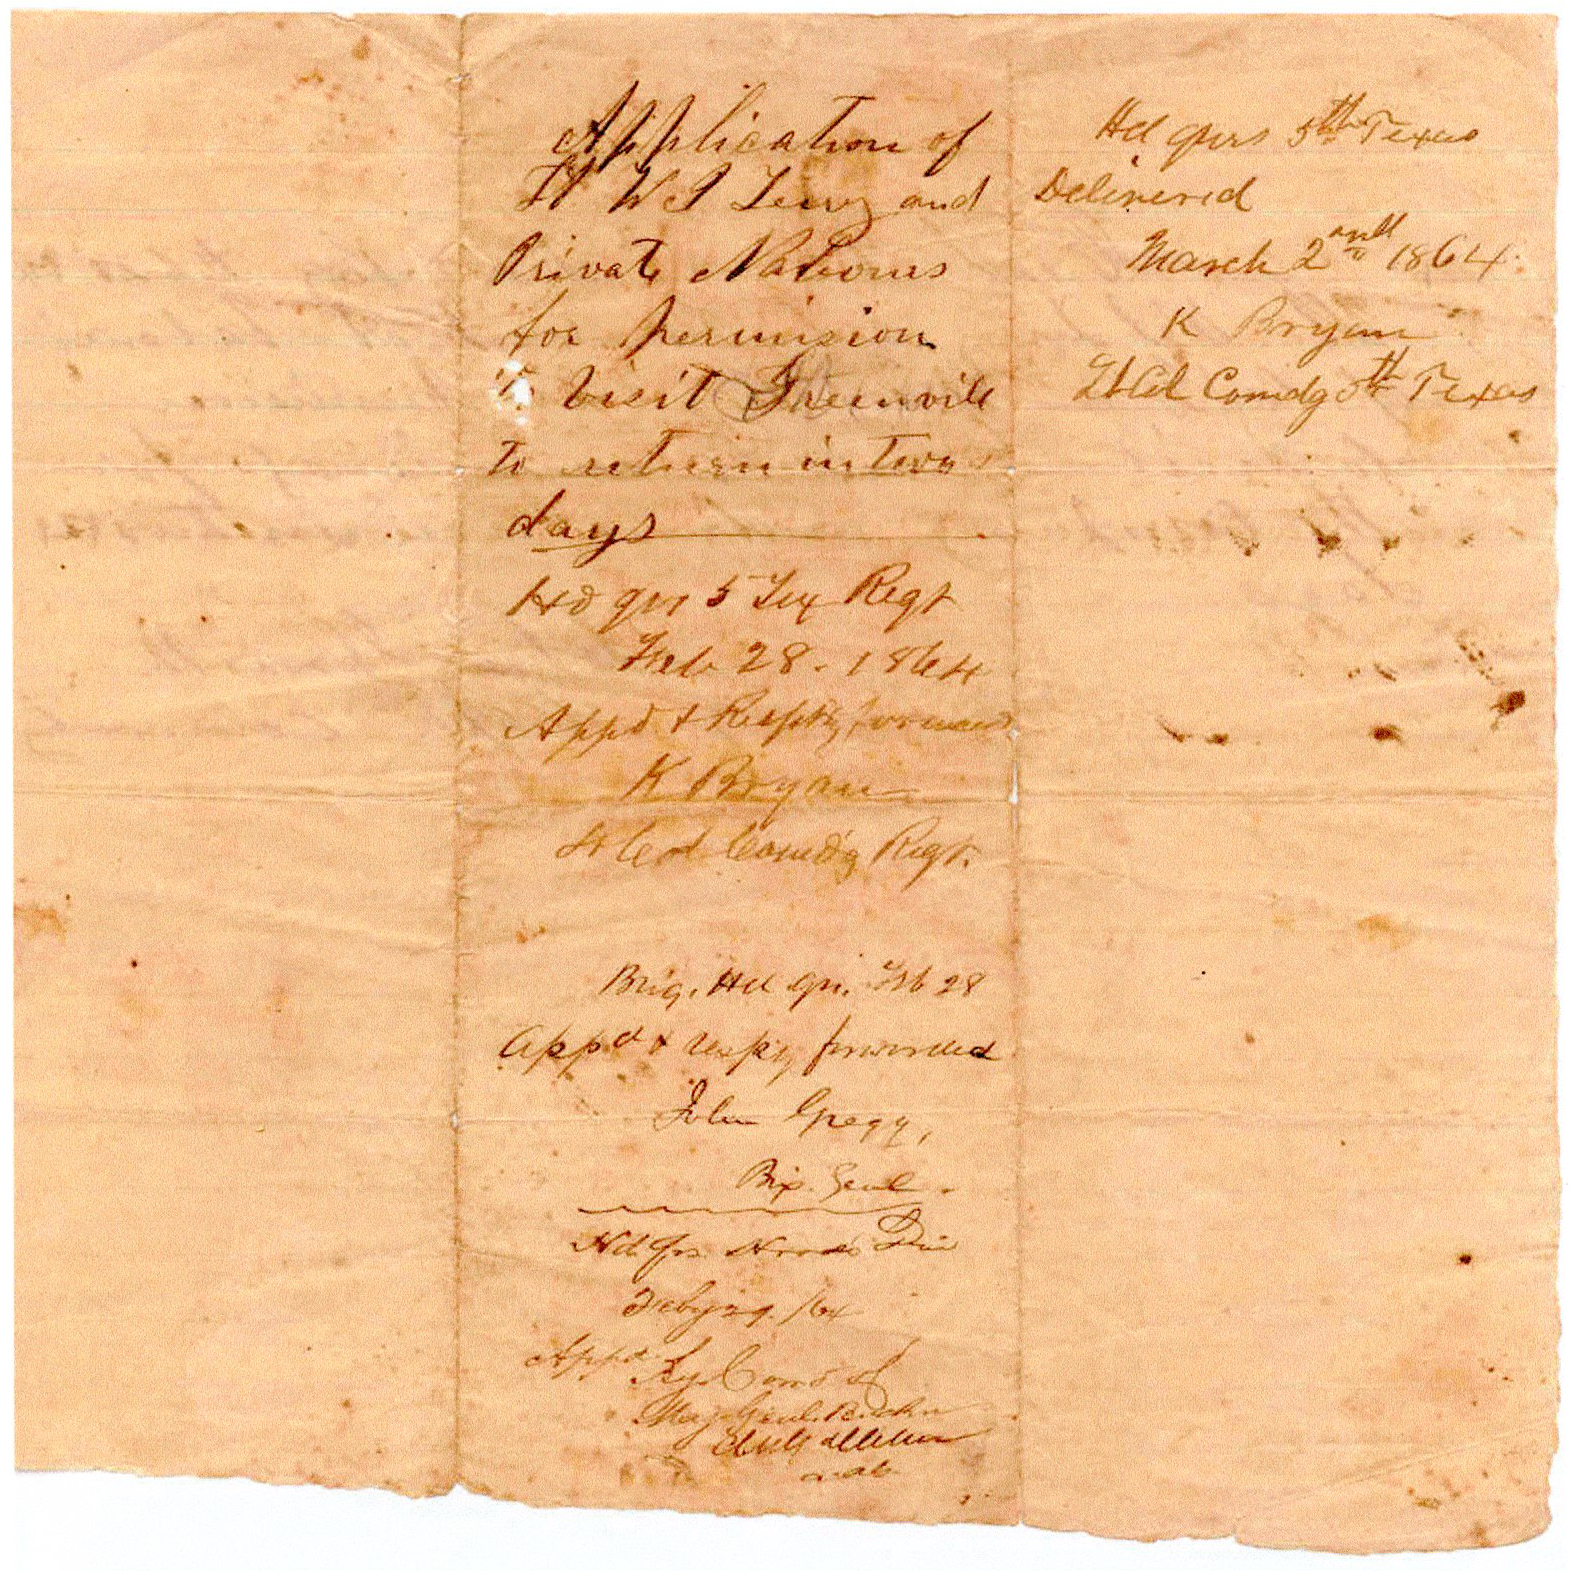 Application of
Lt W P and
Private Nabours
for permission
to visit Greenvile
to return in two
days
Hd qrs 5 Tex Regt
Feb 28. 1864
Appd & Respty forward
K Bryan
Lt Col Comdg Regt.
Brig. Hd qrs. Feb 28
Appd & respy forwarded
John Gregg,
Brig. Genl.
Hd Qrs Hoods Div
Feby 29. /64
Appd
By Comd of
Maj Genl.
Hd qurs 5th Texas
Delivered
March 2nd 1864.
K Bryan
Lt Col Comdg 5th Texas